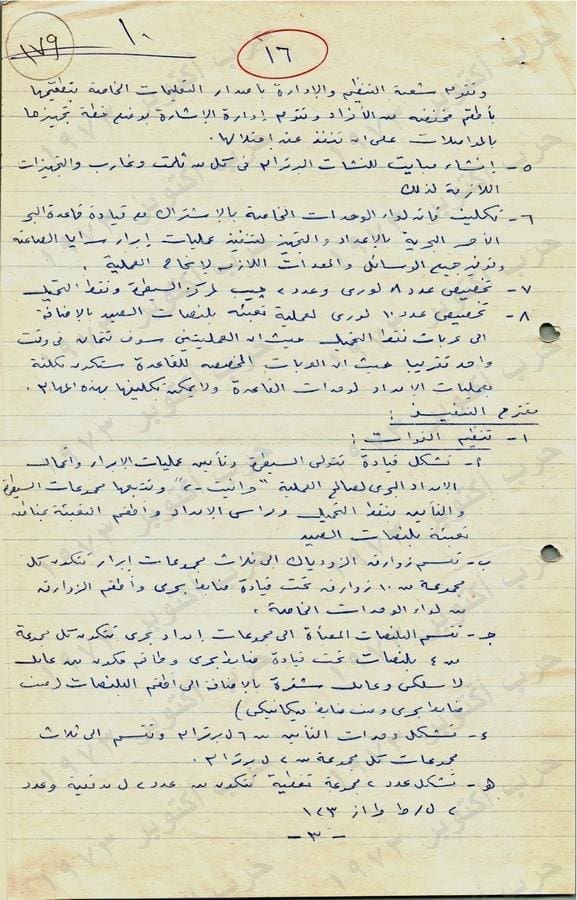 ١٠
١٧٩
١٦
وتقوم شعبة التنظيم والإدارة باصدار التعليمات الخاصة بتطقيمها
بأطقم مخفضه من الأفراد وتقوم إدارة الإشارة بوضع خطة تجهيزها
بالمواصلات على ان تنفذ عند احتلالها.
٥- إنشاء مبايت للنشات البرترام فى كل من ثلمت وغارب والتجهيزات
اللازمة لذلك
٦- تكليف قائد لواء الوحدات الخاصة بالإشتراك مع قيادة قاعدة البحر
الأحمر البحرية بالإعداد والتجهيز لتنفيذ عمليات إبرار سرايا الصاعقة
وتوفير جميع الوسائل والمعدات اللازمة لإنجاح العملية.
٧- تخصيص عدد ٨ لورى وعدد ٢ جيب لمركز السيطرة ونقط التحميل
٨- تخصيص عدد ١٠ لورى لعملية تعبئه بلنصات الصيد بالإضافة
الى عربات نقط التحميل حيث ان العمليتين سوف تتمان فى وقت
واحد تقريبا حيث ان العربات المخصصه للقاعدة ستكون مكلفة
بعمليات الإمداد لوحدات القاعدة ولا يمكن تكليفها بهذه المهام.
مقترح التنفيذ :
١- تنظيم القوات :
أ- تشكل قيادة تتولى السيطرة وتأمين عمليات الإبرار وأعمال
الإمداد البحرى لصالح العملية وتتبعها مجموعات السيطرة
والتأمين بنقط التحميل ومراسى الإمداد وأطقم التعبئة
تعبئة بلنصات الصيد
ب- تقسم زوارق الزودياك الى ثلاث مجموعات إبرار تتكون كل
مجموعة من ١٠ زوارق تحت قيادة ضابط بحرى وأطقم الزوارق
من لواء الوحدات الخاصة.
جـ- تقسم البلنصات المعبأة الى مجموعات إمداد بحرى تتكون كل مجموعة
من ٤ بلنصات تحت قيادة ضابط بحرى وطاقم مكون من عامل
لاسلكى وعامل شفرة بالإضافة الى أطقم البلنصات (صف
ضابط بحرى وصف ضابط ميكانيكى)
ء- تشكل وحدات التأمين من ٦ ل برترام وتقسم الى ثلاث
مجموعات كل مجموعة من ٢ ل برترام.
هـ- تشكل عدد ٢ مجموعة تغطية تتكون من عدد ٢ ل مدفعية وعدد
٢ ل/ط طراز ١٢٣
-٣-
حرب أكتوبر ١٩٧٣